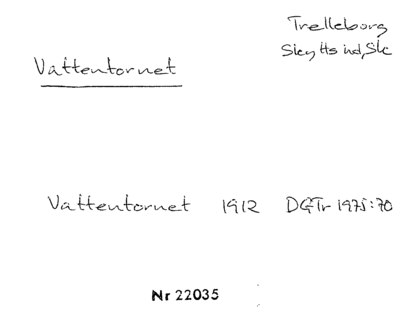 Trelleborg
Skytts hd, Sk
Vattentornet
Vattentornet 1912 DGTr 1975:70
Nr 22035